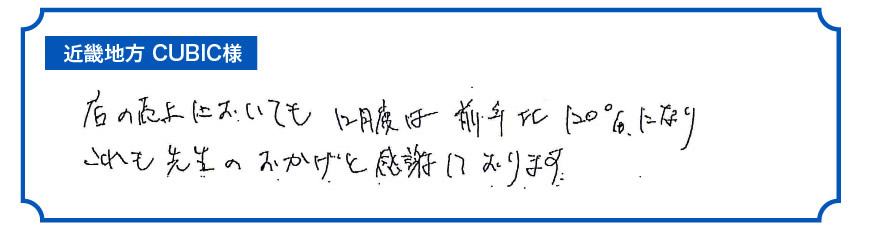 近畿地方 CUBIC様
店の売上においても 12月度は 前年比 120%になり
これも先生のおかげと感謝しております。